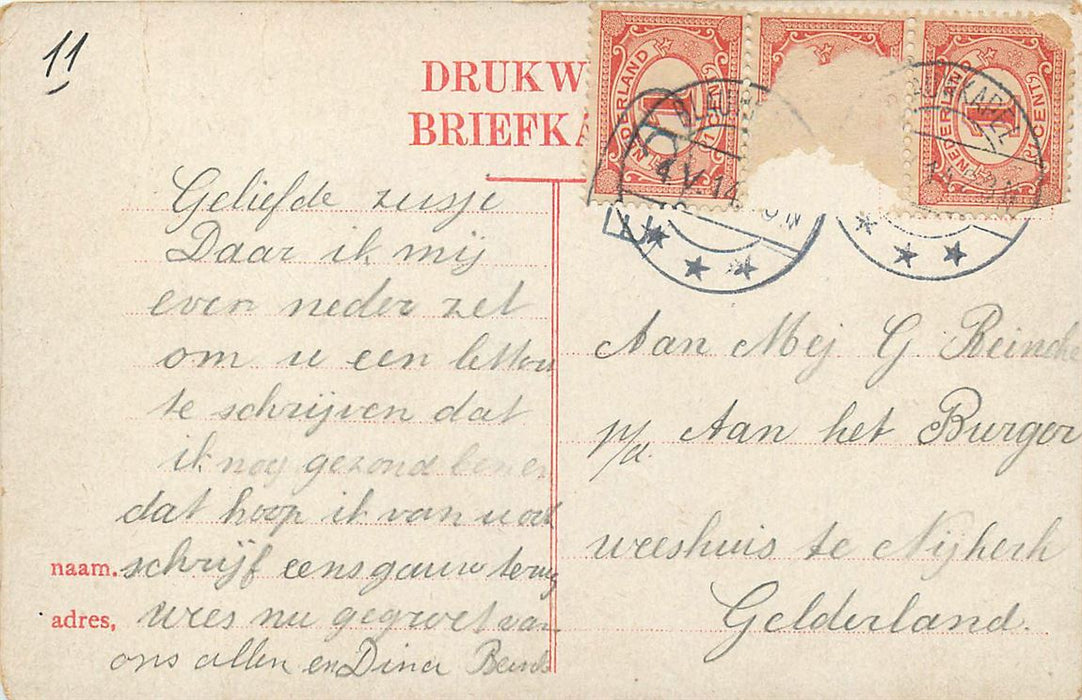 11
DRUKW
BRIEFKA
NEDERLAND
1
CENT
NEDERLAND
1
CENT
4.V.14
Geliefde zusje
Daar ik mij
even neder zet
om u een letter
te schrijven dat
ik nog gezond ben en
dat hoop ik van u ook
naam. schrijf eens gauw terug
adres, wees nu gegroet van
ons allen en Dina
Aan Mej G Reincke
p/a Aan het Burger
weeshuis te Nijkerk
Gelderland.